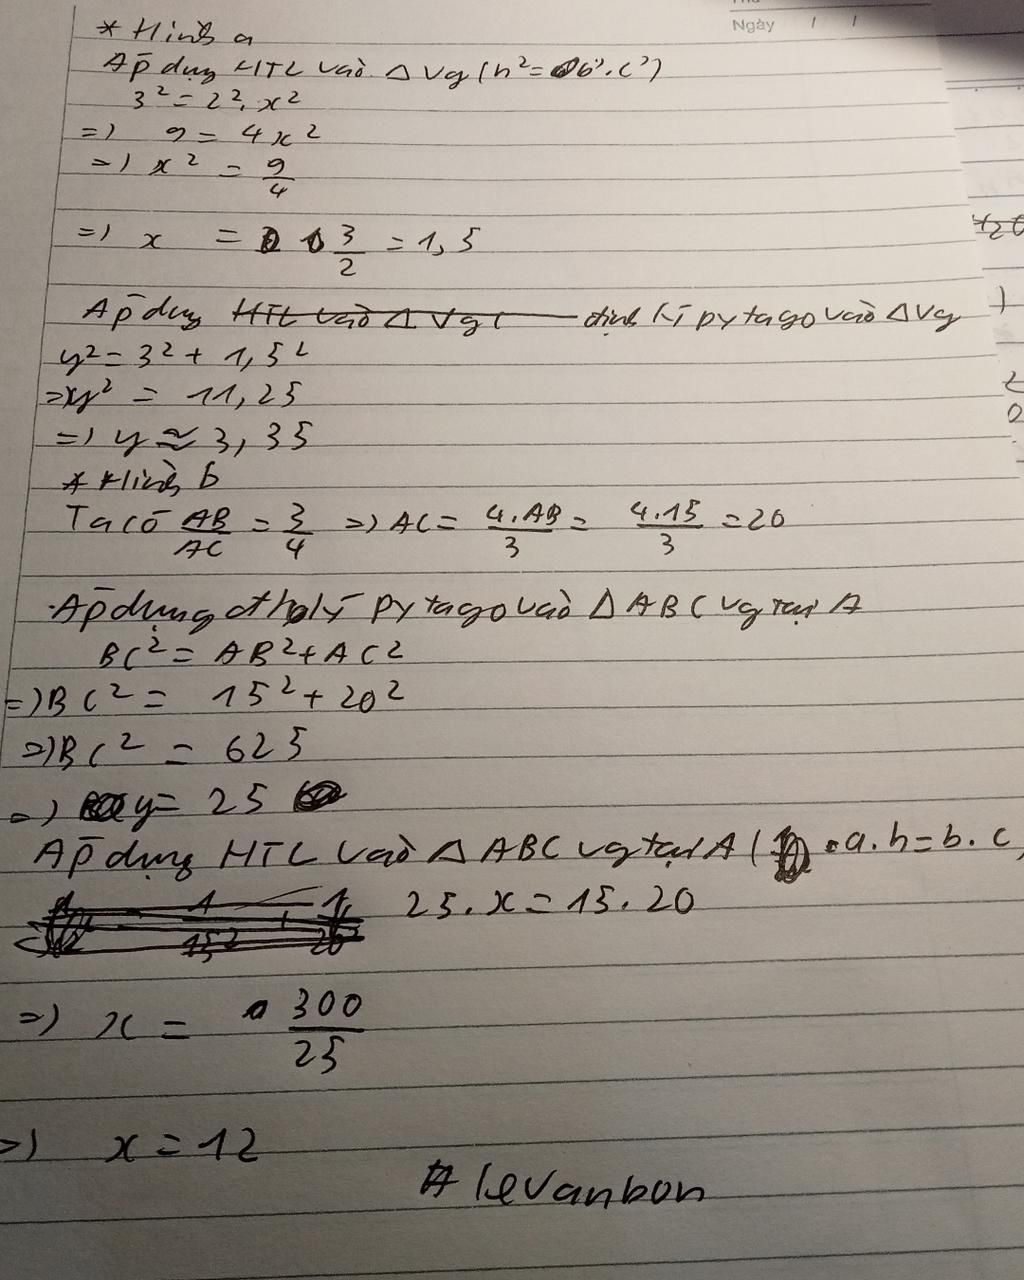 Ngày / /
* Hình a
Áp dụng HTL vào Δ Vg (h² = b'.c')
3² = 2².x²
=> 9 = 4x²
=> x² = 9/4
=> x = 3/2 = 1,5
Áp dụng HTL vào Δ Vg ( định lí pytago vào Δ Vg
y² = 3² + 1,5²
=> y² = 11,25
=> y ≈ 3,35
* Hình b
Ta có AB/AC = 3/4 => AC = 4.AB/3 = 4.15/3 = 20
Áp dụng đthợ lý pytago vào Δ ABC vg tại A
BC² = AB² + AC²
=> BC² = 15² + 20²
=> BC² = 625
=> y = 25
Áp dụng HTL vào Δ ABC vg tại A ( a.h = b.c
25.x = 15.20
=> x = 300/25
=> x = 12
# levanbon